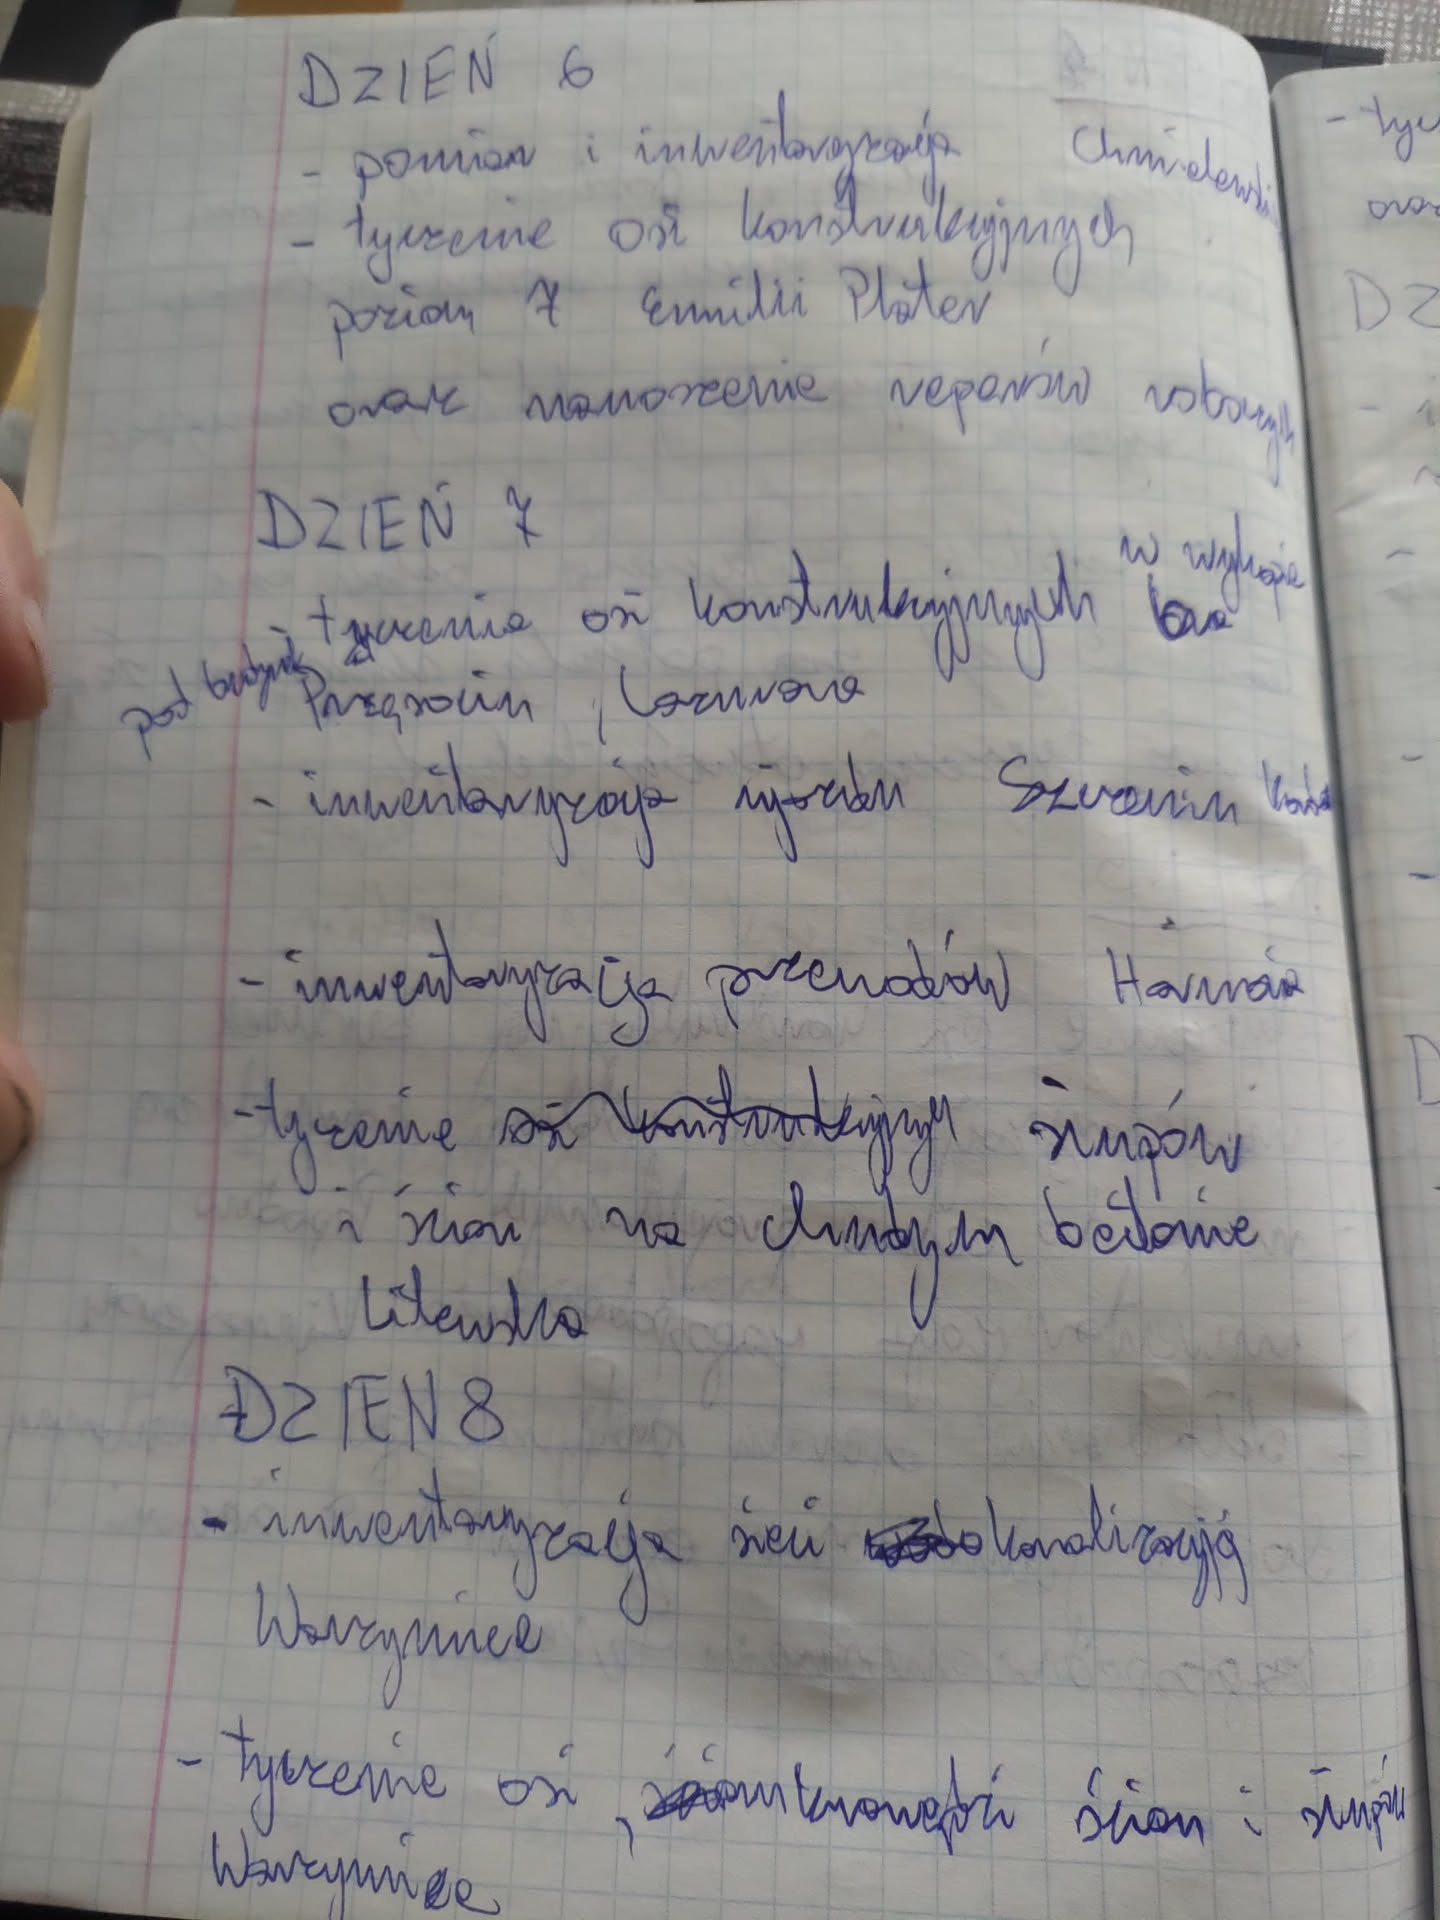 DZIEŃ 6
- pomiar i inwentaryzacja Chmielewski
- tyczenie osi konstrukcyjnych
poziom 7 Emilii Plater
oraz nanoszenie reperów roboczych
DZIEŃ 7
- tyczenie osi konstrukcyjnych w wykopie
pod budynek Przęsocin, Lazurowa
- inwentaryzacja zjazdu Szczecin
- inwentaryzacja przewodów
- tyczenie osi konstrukcyjnych słupów
i ścian na chudym betonie
Litewska
DZIEŃ 8
- inwentaryzacja sieci kanalizacyją
Warzymice
- tyczenie osi, krawędzi ścian i słupów
Warzymice
- tyc
oraz
DZ